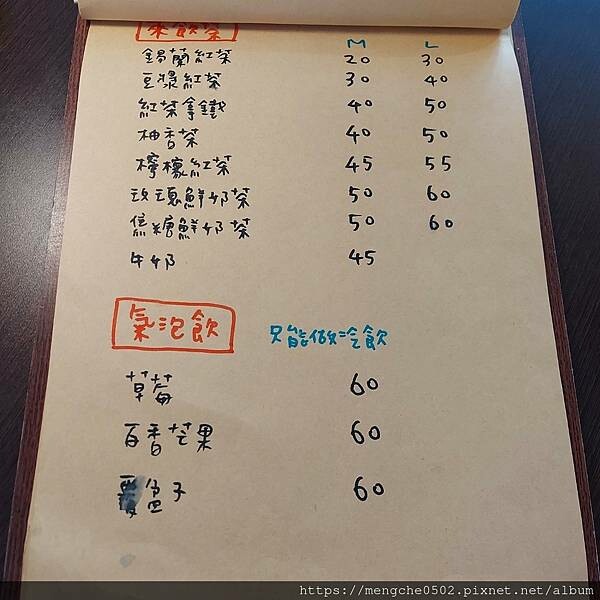 來飲茶 M L
錫蘭紅茶 20 30
豆漿紅茶 30 40
紅茶拿鐵 40 50
柚香茶 40 50
檸檬紅茶 45 55
玫瑰鮮奶茶 50 60
焦糖鮮奶茶 50 60
牛奶 45
氣泡飲 只能做冷飲
草莓 60
百香芒果 60
覆盆子 60
https://mengche0502.pixnet.net/album